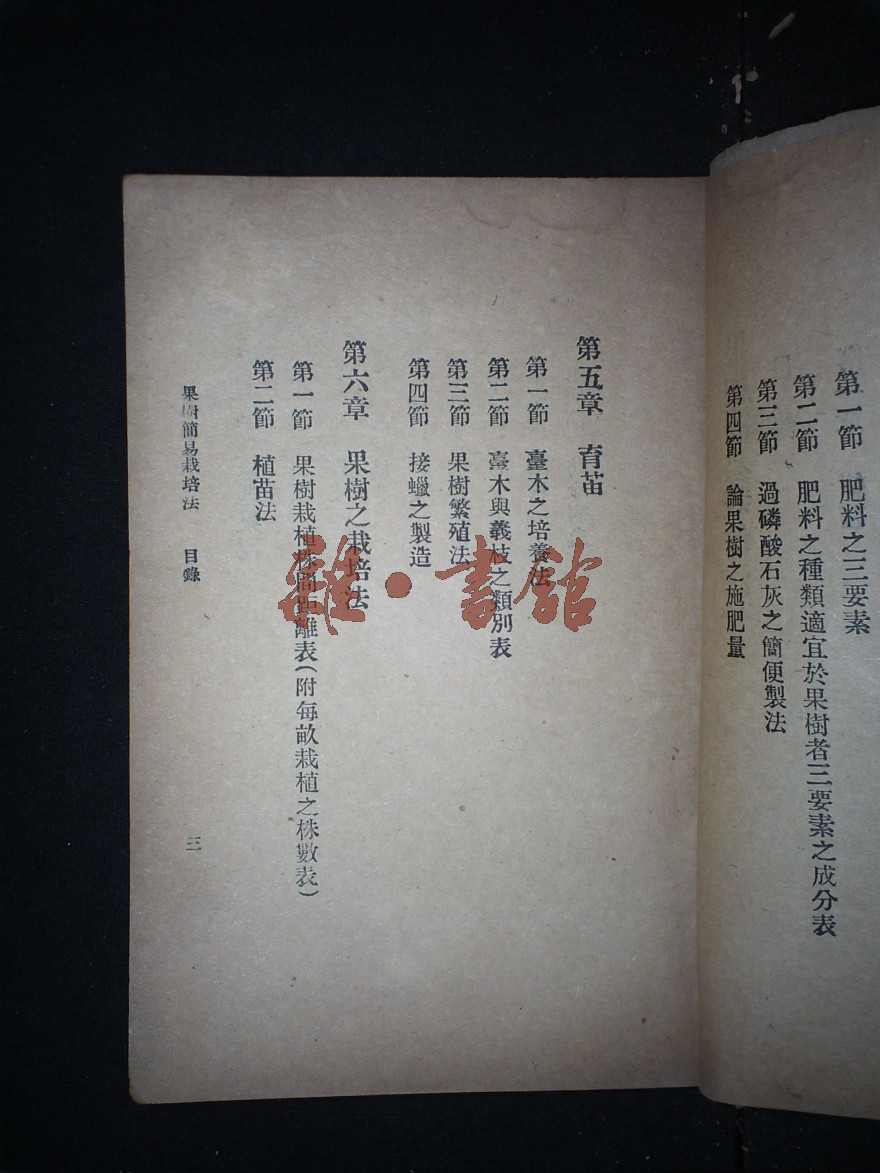 第一節 肥料之三要素
第二節 肥料之種類適宜於果樹者三要素之成分表
第三節 過磷酸石灰之簡便製法
第四節 論果樹之施肥量
第五章 育苗
第一節 臺木之培養法
第二節 臺木與義枝之類別表
第三節 果樹繁殖法
第四節 接蠟之製造
第六章 果樹之栽培法
第一節 果樹栽植株間距離表(附每畝栽植之株數表)
第二節 植苗法
果樹簡易栽培法 目錄
三
雜·書館